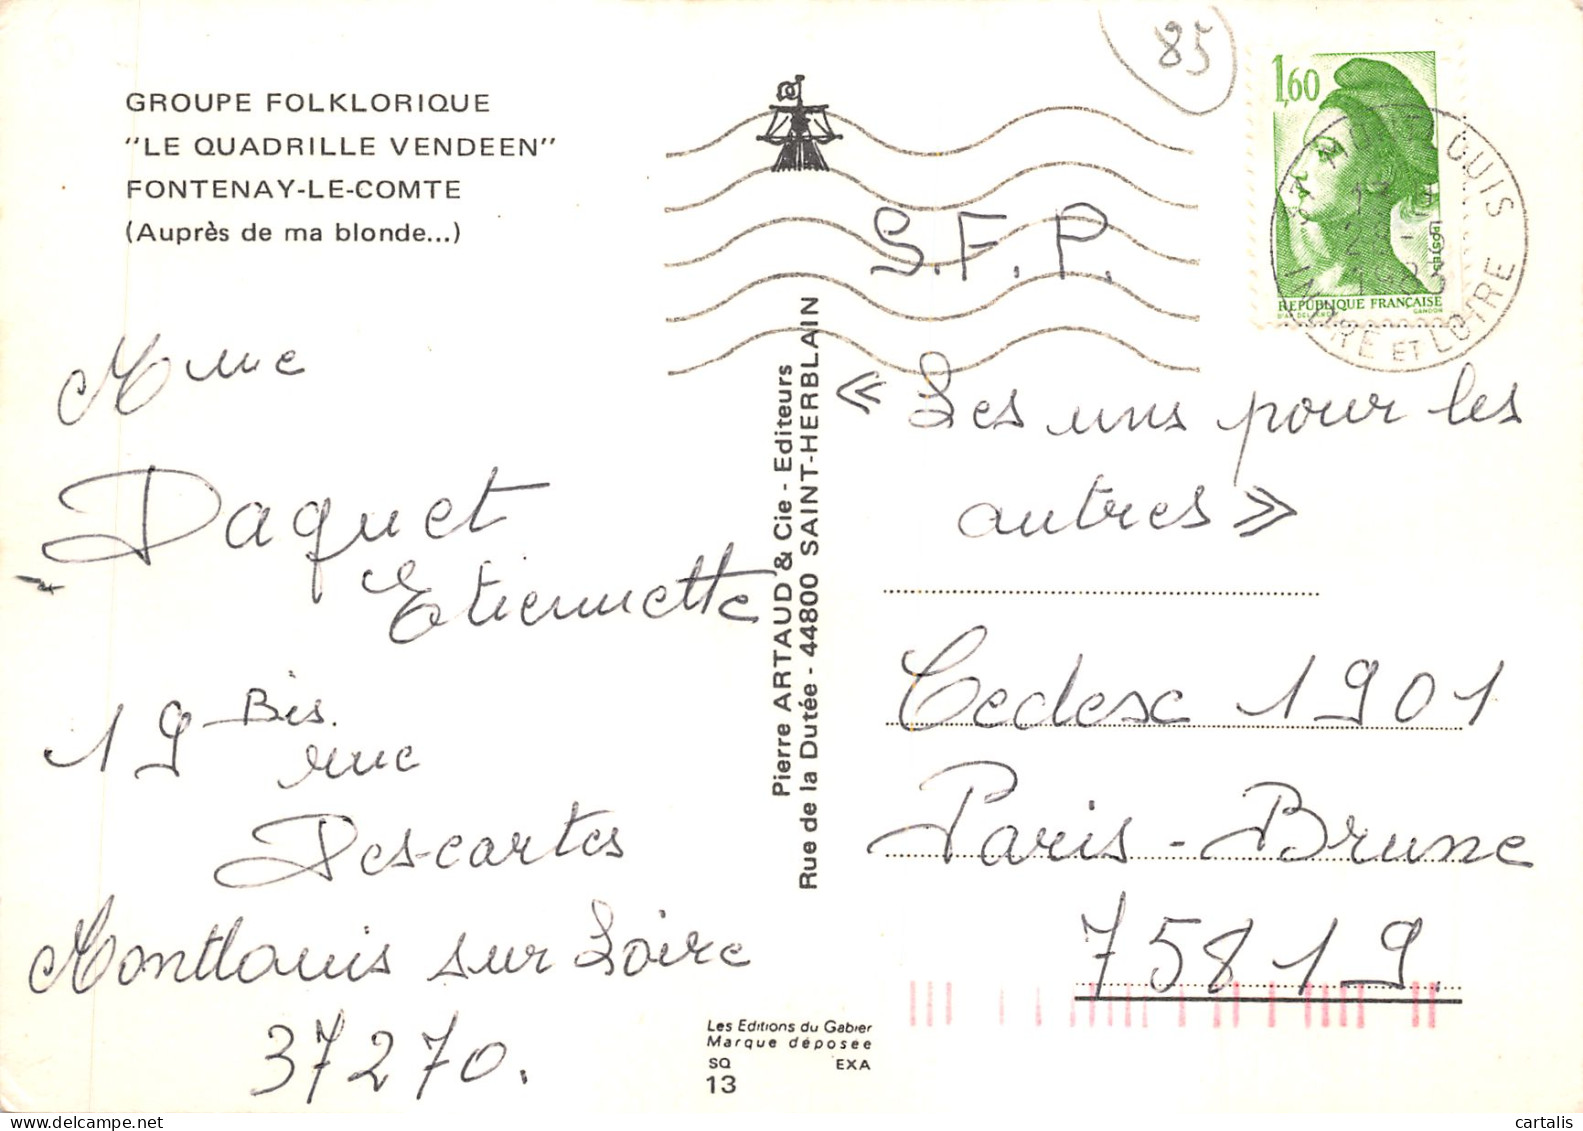 GROUPE FOLKLORIQUE
"LE QUADRILLE VENDEEN"
FONTENAY-LE-COMTE
(Auprès de ma blonde...)
85
1,60
POSTES
REPUBLIQUE FRANÇAISE
GANDON
INDRE ET LOIRE
S.F.P.
Mme
Daquet
Etiennette
19 Bis.
rue
Des-cartes
Montlouis sur Loire
37270.
Pierre ARTAUD & Cie - Editeurs
Rue de la Dutée - 44800 SAINT-HERBLAIN
« Les uns pour les
autres »
Cedesc 1901
Paris - Brune
75819.
Les Editions du Gabier
Marque déposée
SQ EXA
13
cartalis